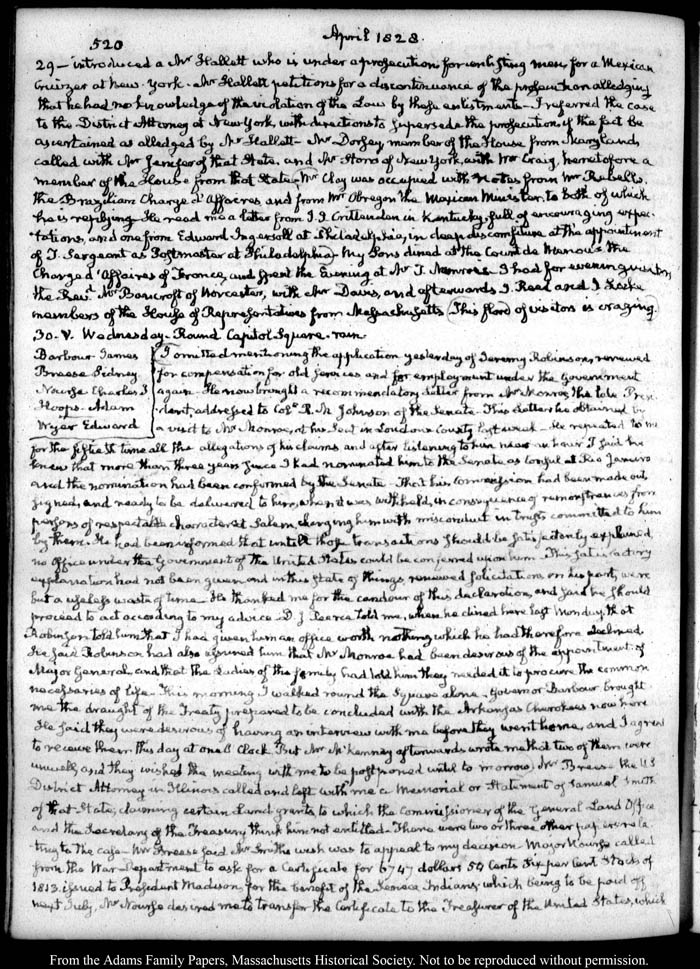 520
April 1828.
29— introduced a Mr Hallett who is under a prosecution for enlisting men, for a Mexican
Cruizer at New-York. Mr Hallett petitions for a discontinuance of the prosecution alledging
that he had no knowledge of the violation of the Law by those enlistments— I referred the case
to the District Attorney at New York, with directions to supersede the prosecution if the fact be
ascertained as alledged by Mr Hallett— Mr Dorsey, member of the House from Maryland,
called with Mr Jenifer of that State. and Mr Storrs of New York, with Mr Craig, heretofore a
member of the House from that State. Mr Clay was occupied with Notes from Mr Rebello,
the Brazilian Chargé d'Affaires and from Mr Obregon the Mexican Minister, to both of which
he is replying. He read me a letter from J. J. Crittenden in Kentucky, full of encouraging expec-
-tations, and one from Edward Ingersoll at Philadelphia, in deep discomfiture at the appointment
of T. Sergeant as Postmaster at Philadelphia. My Sons dined at the Count de Menou's the
Chargé d'Affaires of France, and spent the Evening at Mr T. Monroe's. I had for evening visitors
the Revd Mr Bancroft of Worcester, with Mr Davis, and afterwards J. Reed and J. Locke
members of the House of Representatives from Massachusetts (This flood of visitors is craging.)
30. V. Wednesday. Round Capitol Square. rain.
Barbour James
Breese Sidney
Nourse Charles J
Hoops. Adam
Wyer Edward
I omitted mentioning the application yesterday of Jeremy Robinson, renewed
for compensation for old services and for employment under the Government
again. He now brought a recommendatory letter from Mr Monroe, the late Presi-
dent, addressed to Coll R. M. Johnson of the Senate. This letter he obtained by
a visit to Mr Monroe, at his Seat in Loudoun County last week— He repeated to me
for the fiftieth time all the allegations of his claims and after listening to him near an hour I said he
knew that more than three years since I had nominated him to the Senate as Consul at Rio Janeiro
and the nomination had been confirmed by the Senate— That his Commission had been made out,
signed, and ready to be delivered to him, when it was withheld, in consequence of remonstrances from
persons of respectable character at Salem, charging him with misconduct in trusts committed to him
by them. He had been informed that until those transactions should be satisfactorily explained,
no office under the Government of the United States could be conferred upon him— This satisfactory
explanation had not been given and in this state of things, renewed solicitations on his part, were
but a useless waste of time— He thanked me for the candour of this declaration, and said he should
proceed to act according to my advice— D. J. Pearce told me, when he dined here last Monday, that
Robinson told him that I had given him an office worth nothing which he had therefore declined.
He said Robinson had also assured him that Mr Monroe had been desirous of the appointment of
Major General, and that the Ladies of the family had told him they needed it to procure the common
necessaries of life— This morning I walked round the Square alone. Governor Barbour brought
me the draught of the Treaty proposed to be concluded with the Arkansas Cherokees now here
He said they were desirous of having an interview with me before they went home, and I agreed
to receive them this day at one O'Clock. But Mr McKenney afterwards wrote me that two of them were
unwell, and they wished the meeting with me to be postponed until to morrow. Mr Breese the U.S
District Attorney in Illinois called and left with me a Memorial or Statement of Samuel Smith
of that State, claiming certain Land grants, to which the Commissioner of the General Land Office
and the Secretary of the Treasury think him not entitled— There were two or three other papers rela-
-ting to the case— Mr Breese said Mr Smith's wish was to appeal to my decision— Major Nourse called
from the War-Department to ask for a Certificate for 6747 dollars 54 Cents Six per Cent Stocks of
1813. issued to President Madison, for the benefit of the Seneca Indians, which being to be paid off
next July, Mr Nourse desired me to transfer the Certificate to the Treasurer of the United States, which
From the Adams Family Papers, Massachusetts Historical Society. Not to be reproduced without permission.